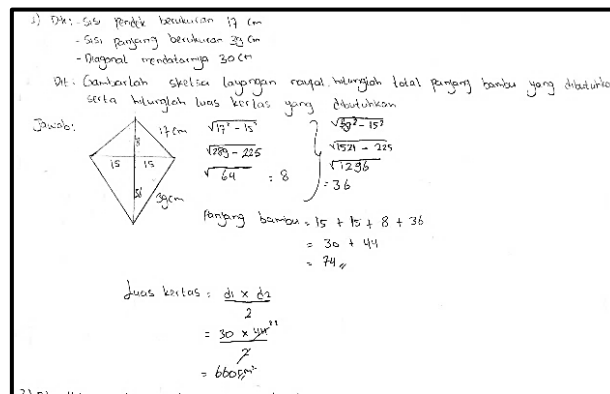 1) Dik: - Sisi pendek berukuran 17 cm
- Sisi panjang berukuran 39 cm
- Diagonal mendatarnya 30 cm
Dit: Gambarlah sketsa layangan hitunglah total panjang bambu yang dibutuhka
serta hitunglah luas kertas yang dibutuhkan
Jawab:
17 cm
8
15 15
39cm
√17² - 15²
√289 - 225
√64 : 8
√39² - 15²
√1521 - 225
√1296
= 36
Panjang bambu = 15 + 15 + 8 + 36
= 30 + 44
= 74
Luas kertas = d1 x d2
2
= 30 x 44
2
= 660 cm²